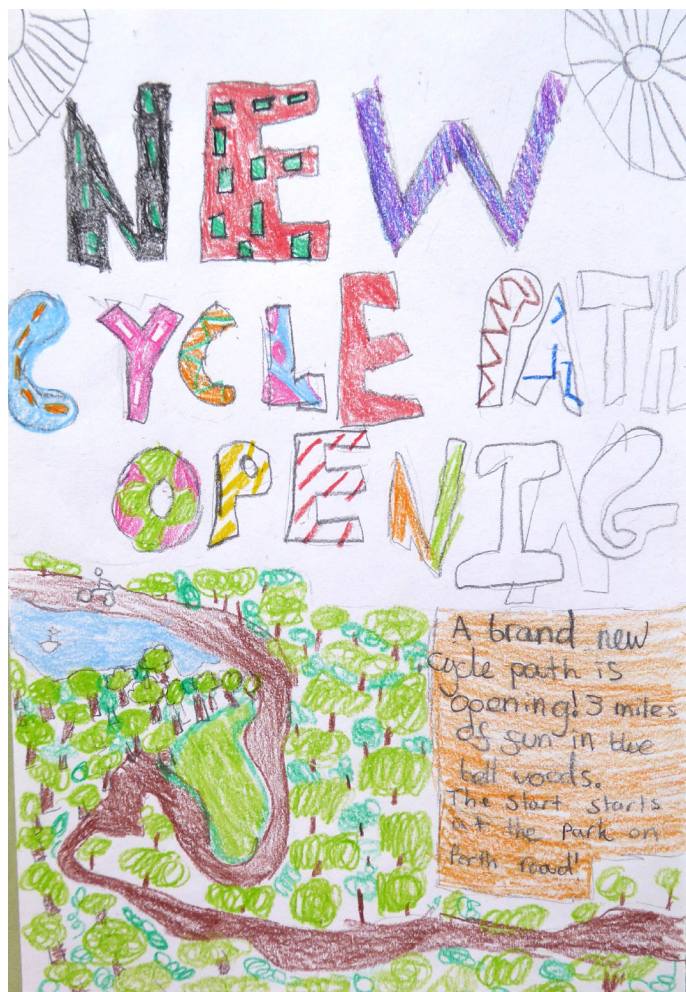 NEW
CYCLE PATH
OPENING
A brand new
cycle path is
opening! 3 miles
of fun in blue
bell woods.
The start starts
at the park on
Perth road!